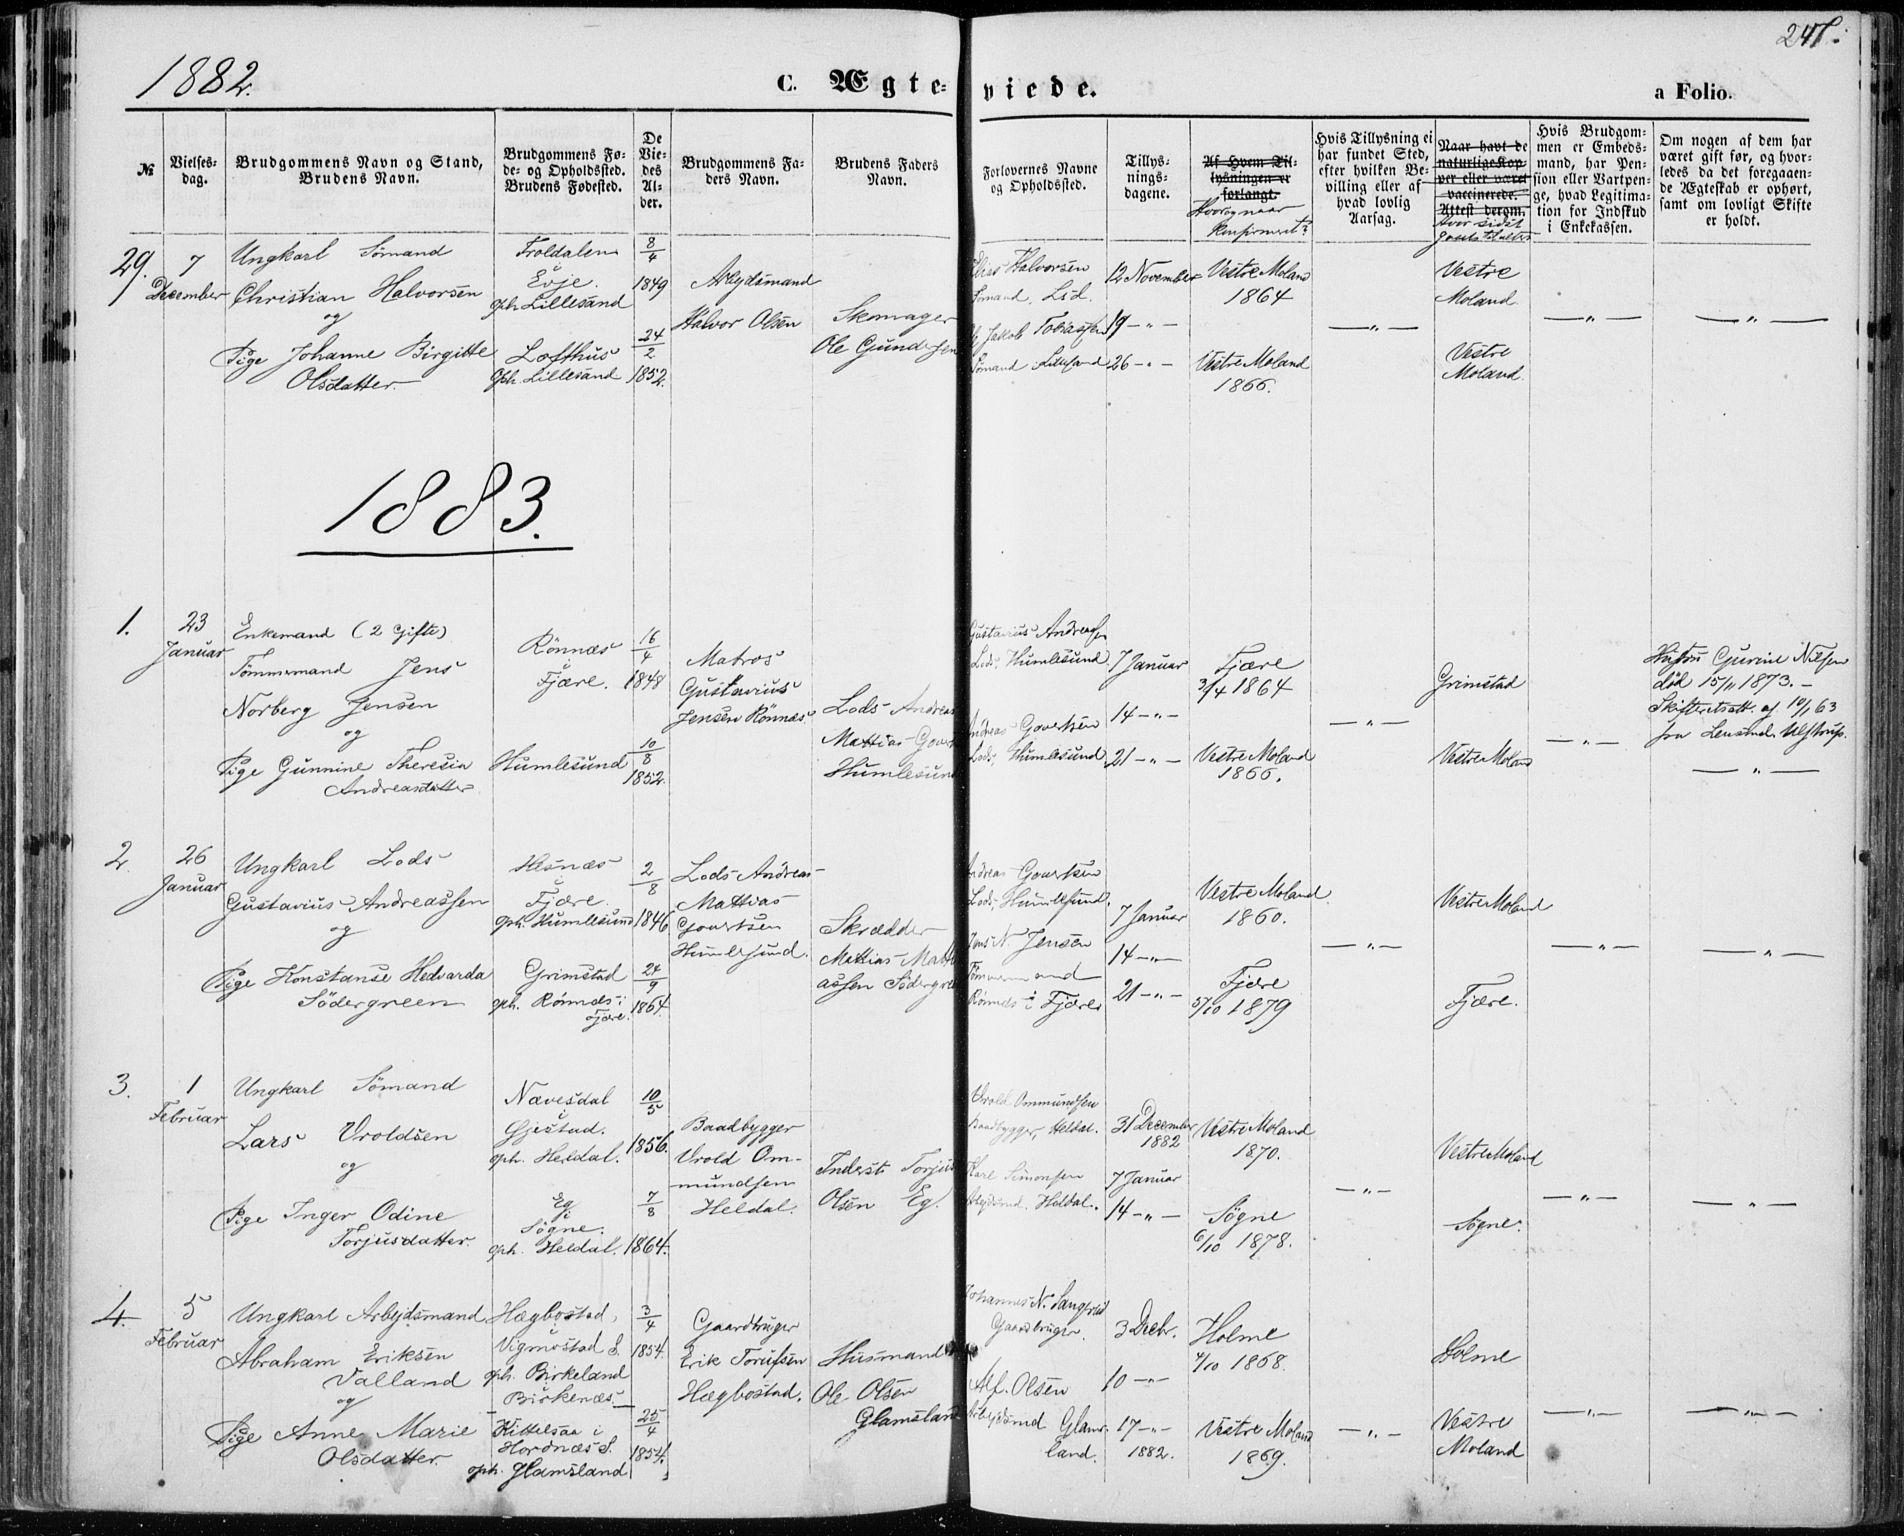 1882.
C. Ægte-
viede.
a Folio.
247.
№
Vielses-
dag.
Brudgommens Navn og Stand,
Brudens Navn.
Brudgommens Fø-
de- og Opholdssted.
Brudens Fødested.
De
Vie-
des
Al-
der.
Brudgommens Fa-
ders Navn.
Brudens Faders
Navn.
Forlovernes Navne
og Opholdssted.
Tillys-
nings-
dagene.
Af Hvem Til-
lysningen er
forlangt.
Hvor og naar
Konfirmeret?
Hvis Tillysning ei
har fundet Sted,
efter hvilken Be-
villing eller af
hvad lovlig
Aarsag.
Naar havt de
naturlige Kop-
per eller været
vaccinerede.
Attest derom.
Hvor sidst
Hvis Brudgom-
men er Embeds-
mand, har Pen-
sion eller Vartpen-
ge, hvad Legitima-
tion for Indskud
i Enkekassen.
Om nogen af dem har
været gift før, og hvor-
ledes da det foregaaen-
de Ægteskab er ophørt,
samt om lovligt Skifte
er holdt.
29.
7
December
Ungkarl Sømand
Christian Halvorsen
og
Pige Johanne Birgitte
Olsdatter.
Troldalen
Evje.
oph. Lillesand
Lofthus
Oph. Lillesand
8/4
1849
24/2
1852.
Arbejdsmand
Halvor Olsen
Skomager
Ole Gundersen
Elias Halvorsen
Sømand, Lsd.
Jakob Tobiassen
Sømand Lillesand
12 November
19 - " -
26 - " -
Vestre Moland
1864
Vestre Moland
1866.
— " —
Vestre
Moland
Vestre
Moland.
— " —
— " —
1883.
1.
23
Januar
Enkemand (2 Gifte)
Tømmermand Jens
Norberg Jensen
og
Pige Gunnine Theresia
Andreasdatter
Rönnæs
i
Fjære.
Humlesund
16/4
1848
10/8
1852.
Matros
Gustavius
Jensen Rönnæs
Lods Andreas
Mattias Govert
Humlesund
Gustavius Andreassen
Lods, Humlesund
Andreas Govertsen
Lods, Humlesund
7 Januar
14 - " -
21 - " -
Fjære
3/4 1864
Vestre Moland
1866.
— " —
Grimstad
Vestre Moland
— " —
Hustru Gurine Nilsen
død 15/11 1873. -
Skifteretsatt. af 10/1 63
fra Lensmd. Ulstrup.
— " —
2.
26
Januar
Ungkarl Lods
Gustavius Andreassen
og
Pige Konstanse Hedvarda
Södergreen
Hesnæs
i
Fjære.
oph. Humlesund
Grimstad
oph. Rönnæs i
Fjære.
2/8
1846
24/9
1864.
Lods Andreas
Mattias
Govertsen
Humlesund.
Skrædder
Mattias Matti
assen Södergreen
Andreas Govertsen
Lods, Humlesund.
Jens N. Jensen
Tömmermand
Rönnæs i Fjære
7 Januar
14 - " -
21 - " -
Vestre Moland
1860.
Fjære
5/10 1879
— " —
Vestre Moland
Fjære.
— " —
— " —
3.
1
Februar
Ungkarl Sömand
Lars Vroldsen
og
Pige Inger Odine
Torjusdatter.
Nævesdal
i
Gjestad.
oph. Heldal.
Eg
i
Søgne.
oph. Heldal.
10/5
1856.
7/8
1864.
Baadbygger
Vrold Om-
mundsen
Heldal.
Inderst Torjus
Olsen Eg.
Vrold Ommundsen
Baadbygger, Heldal.
Karl Simonsen
Arbejdsmd. Heldal.
31 December
1882
7 Januar
14 - " -
Vestre Moland
1870.
Søgne
6/10 1878.
— " —
Vestre Moland
Søgne.
— " —
— " —
4.
5
Februar
Ungkarl Arbejdsmand
Abraham Eriksen
Valland
og
Pige Anne Marie
Olsdatter.
Hægbostad,
Vigmostad S.
oph. Birkeland
Birkenæs
Kittelsaa i
Hordnæs S.
oph. Glamsland
3/4
1854.
25/4
1854.
Gaardbruger
Erik Torufsen
Hægbostad.
Husmand
Ole Olsen
Glamsland
Johannes N.
Gaardbruger.
Alf. Olsen
Arbejdsmd Glams-
land.
3 Decbr.
10 - " -
17 - " -
1882.
Holme
4/10 1868.
Vestre Moland
1869.
— " —
Holme
Vestre
Moland
— " —
— " —